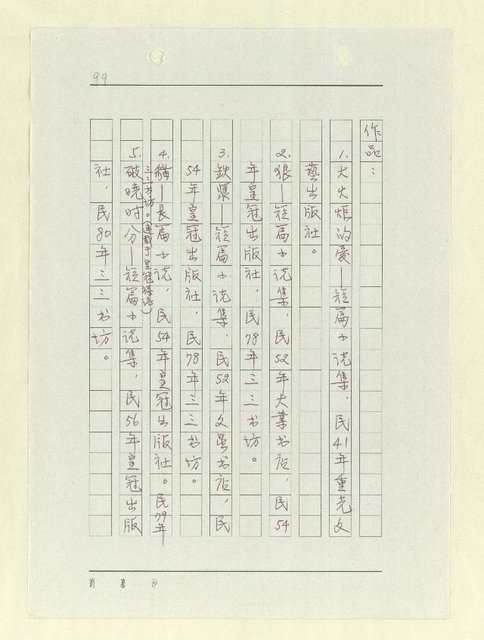 99
作品：
1. 大火炬的愛—短篇小说集，民41年重光文
藝出版社。
2. 狼—短篇小说集，民52年大業书店，民54
年皇冠出版社，民78年三三书坊。
3. 鉄漿—短篇小说集，民52年文星书店，民
54年皇冠出版社，民78年三三书坊。
4. 貓—長篇小说，民54年皇冠出版社。民79年
三三书坊。（連載于皇冠雜誌）
5. 破曉时分—短篇小说集，民56年皇冠出版
社，民80年三三书坊。
劉 慕 沙